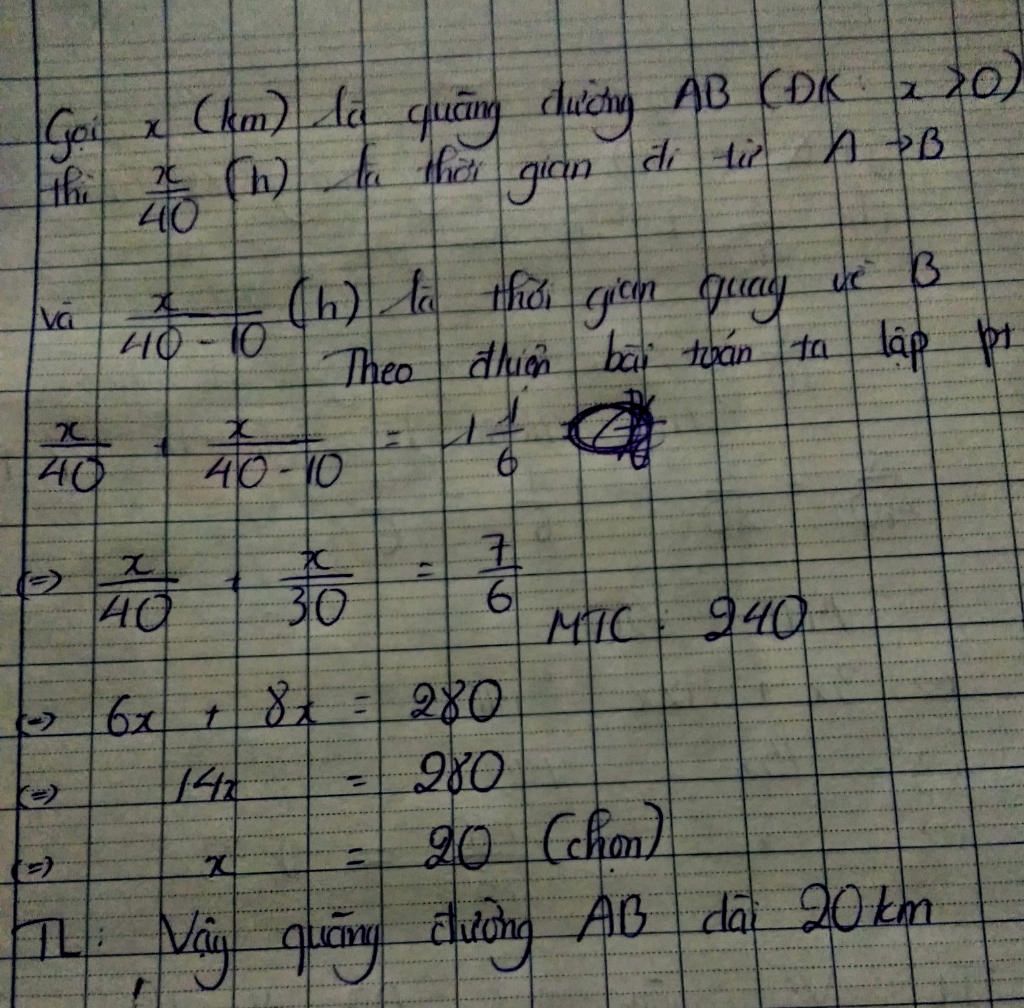 Gọi x (km) là quãng đường AB (ĐK: x > 0)
thì x/40 (h) là thời gian đi từ A → B
Và x/(40 - 10) (h) là thời gian quay về B
Theo đkiện bài toán ta lập pt
x/40 + x/(40 - 10) = 1 1/6
(=) x/40 + x/30 = 7/6
MTC: 240
(=) 6x + 8x = 280
(=) 14x = 280
(=) x = 20 (chọn)
TL: Vậy quãng đường AB dài 20 km